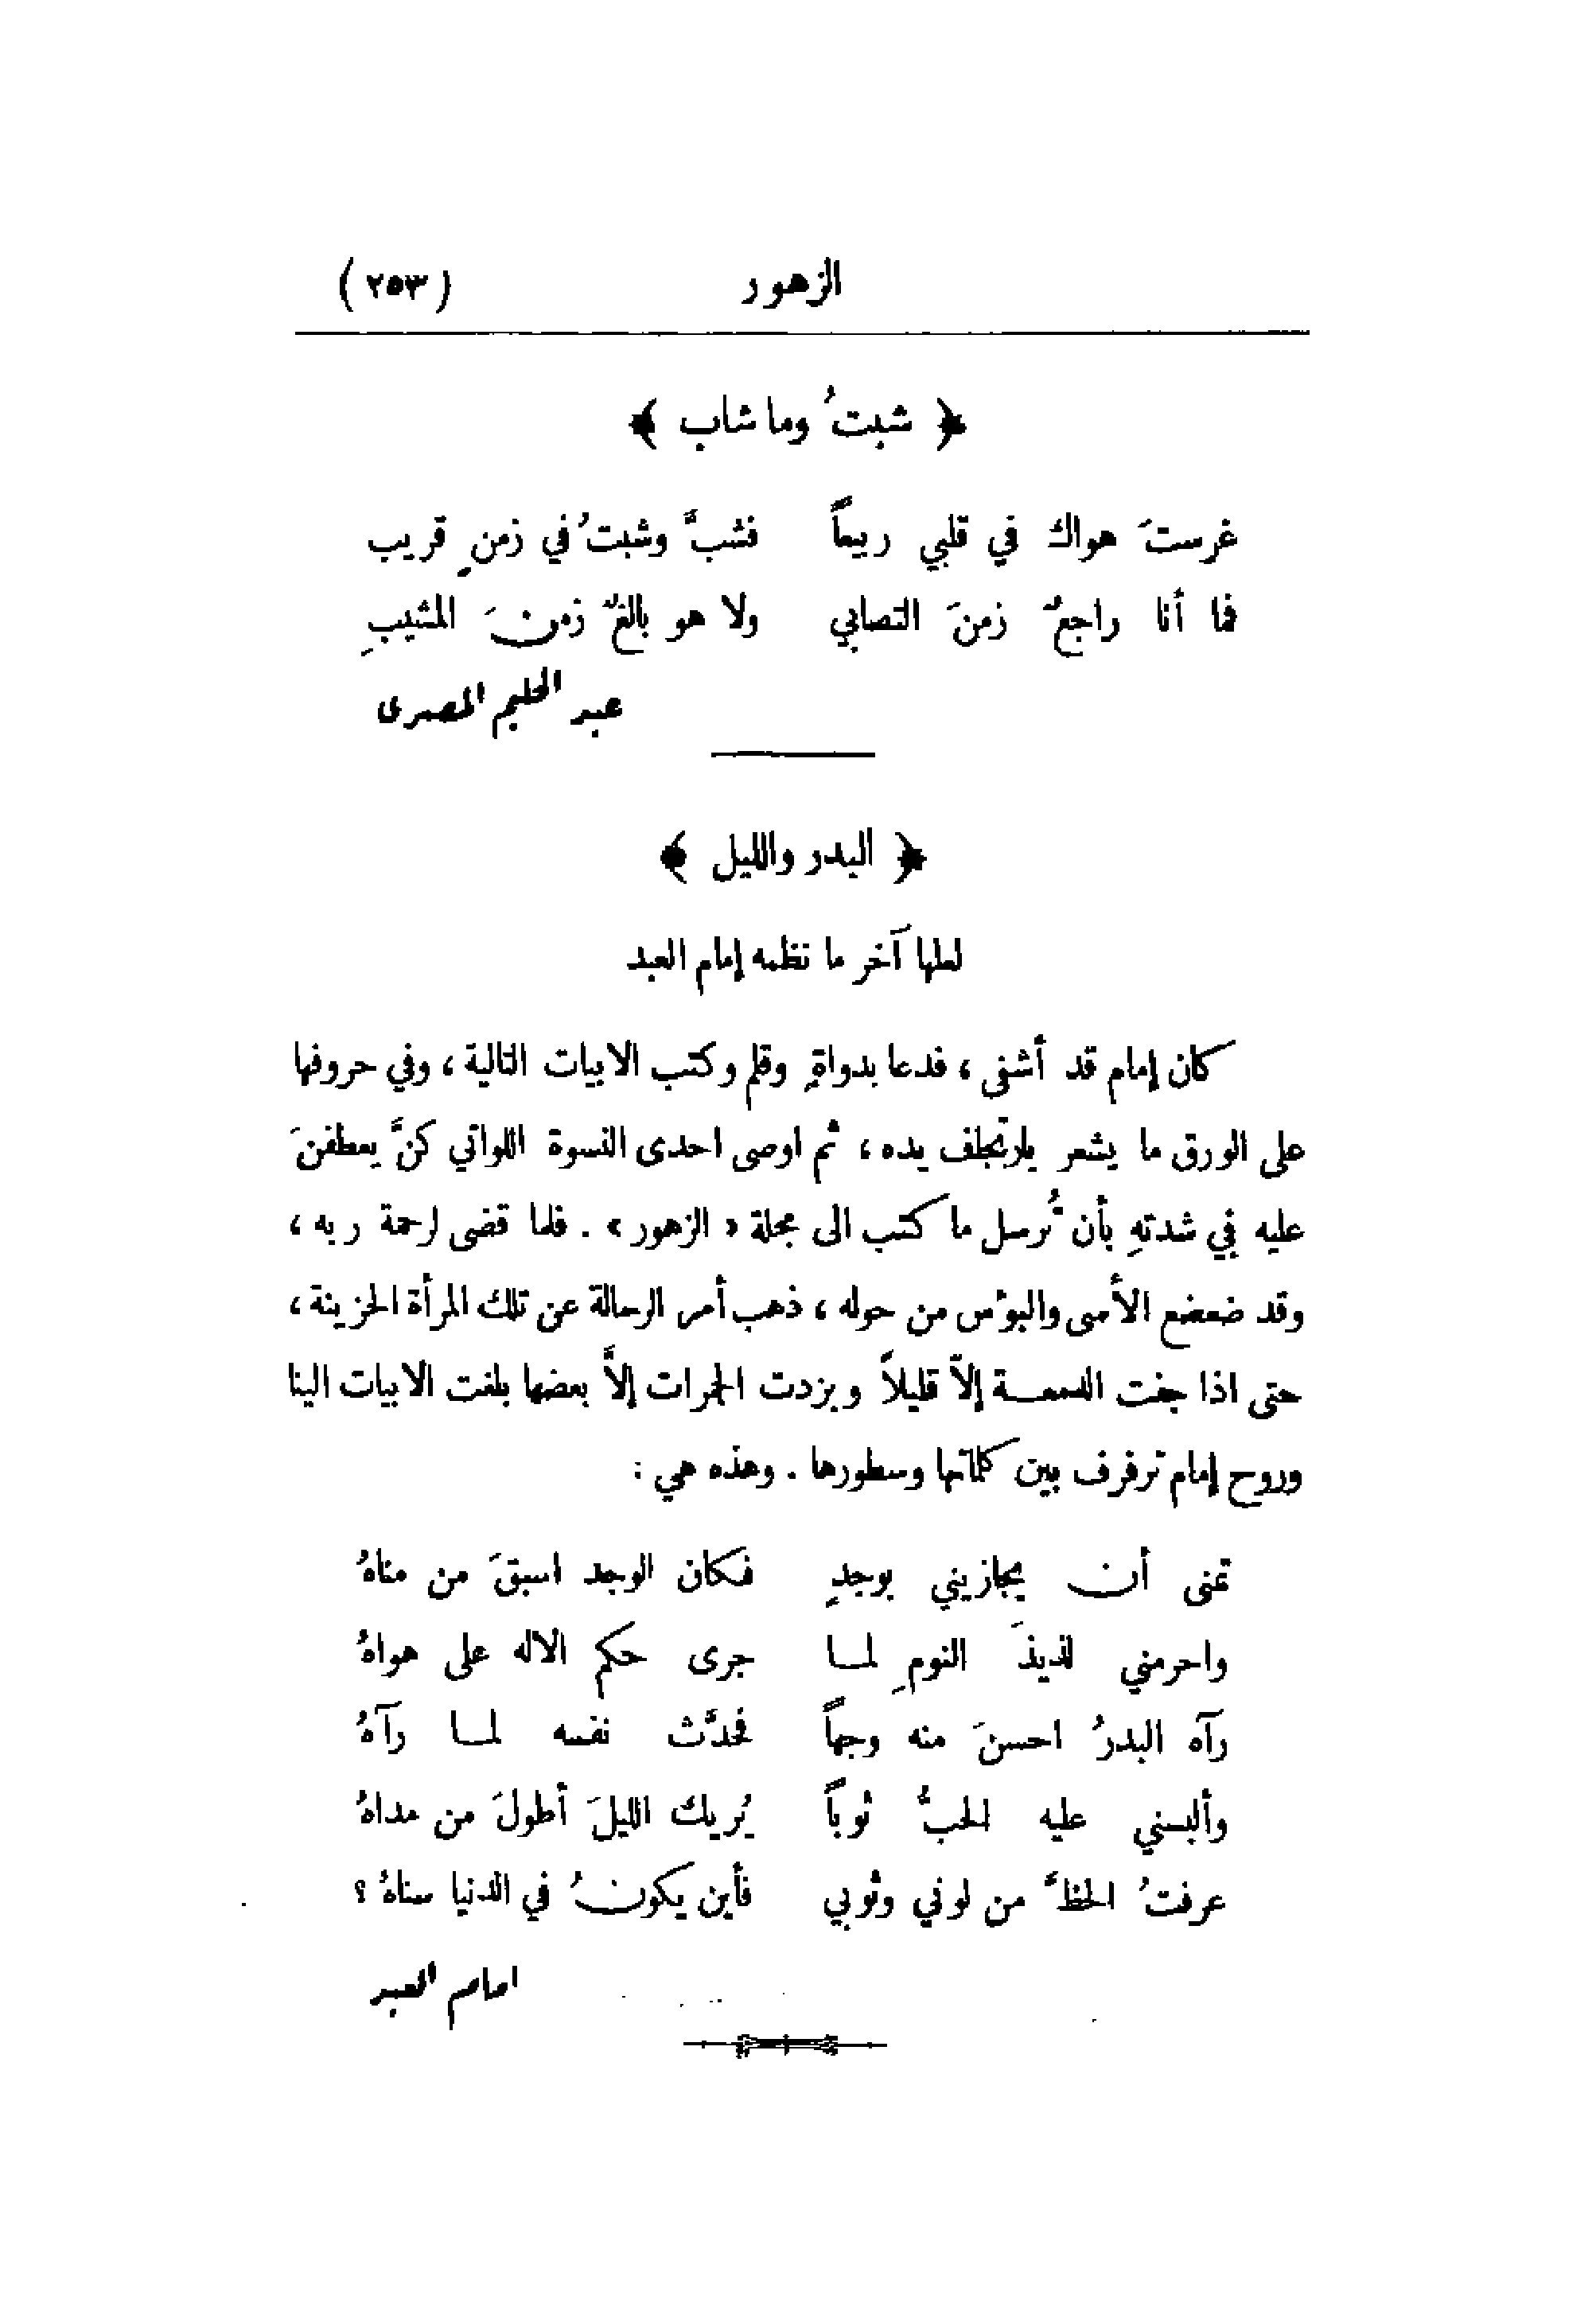 الزهور (٢٥٣)
﴿ شبتُ وما شاب ﴾
غرستَ هواك في قلبي ربيعاً فشبَّ وشبتُ في زمنٍ قريب
فما أنا راجعٌ زمنَ التصابي ولا هو بالغٌ زمنَ المشيبِ
عبد الحليم المصرى
﴿ البدر والليل ﴾
لعلها آخر ما نظمه إمام العبد
كان إمام قد أشفى ، فدعا بدواةٍ وقلم وكتب الابيات التالية ، وفي حروفها
على الورق ما يشعر بارتجاف يده ، ثم اوصى احدى النسوة اللواتي كنَّ يعطفنَ
عليه في شدتهِ بأن تُرسل ما كتب الى مجلة « الزهور » . فلما قضى لرحمة ربه ،
وقد ضعضع الأسى والبؤس من حوله ، ذهب أمر الرسالة عن تلك المرأة الحزينة ،
حتى اذا جفت الدمعـــة إلاّ قليلاً وبردت الجمرات إلاَّ بعضها بلغت الابيات الينا
وروح إمام ترفرف بين كلماتها وسطورها . وهذه هي :
تمنى أن يجازيني بوجدٍ فكان الوجد اسبقَ من مناهُ
واحرمني لذيذَ النومِ لمـا جرى حكم الاله على هواهُ
رآه البدرُ احسنَ منه وجهاً فحدَّث نفسه لمـا رآهُ
وألبسني عليه الحبُّ ثوباً يُريك الليلَ أطولَ من مداهُ
عرفتُ الحظَّ من لوني وثوبي فأين يكونُ في الدنيا سناهُ ؟
امام العبد